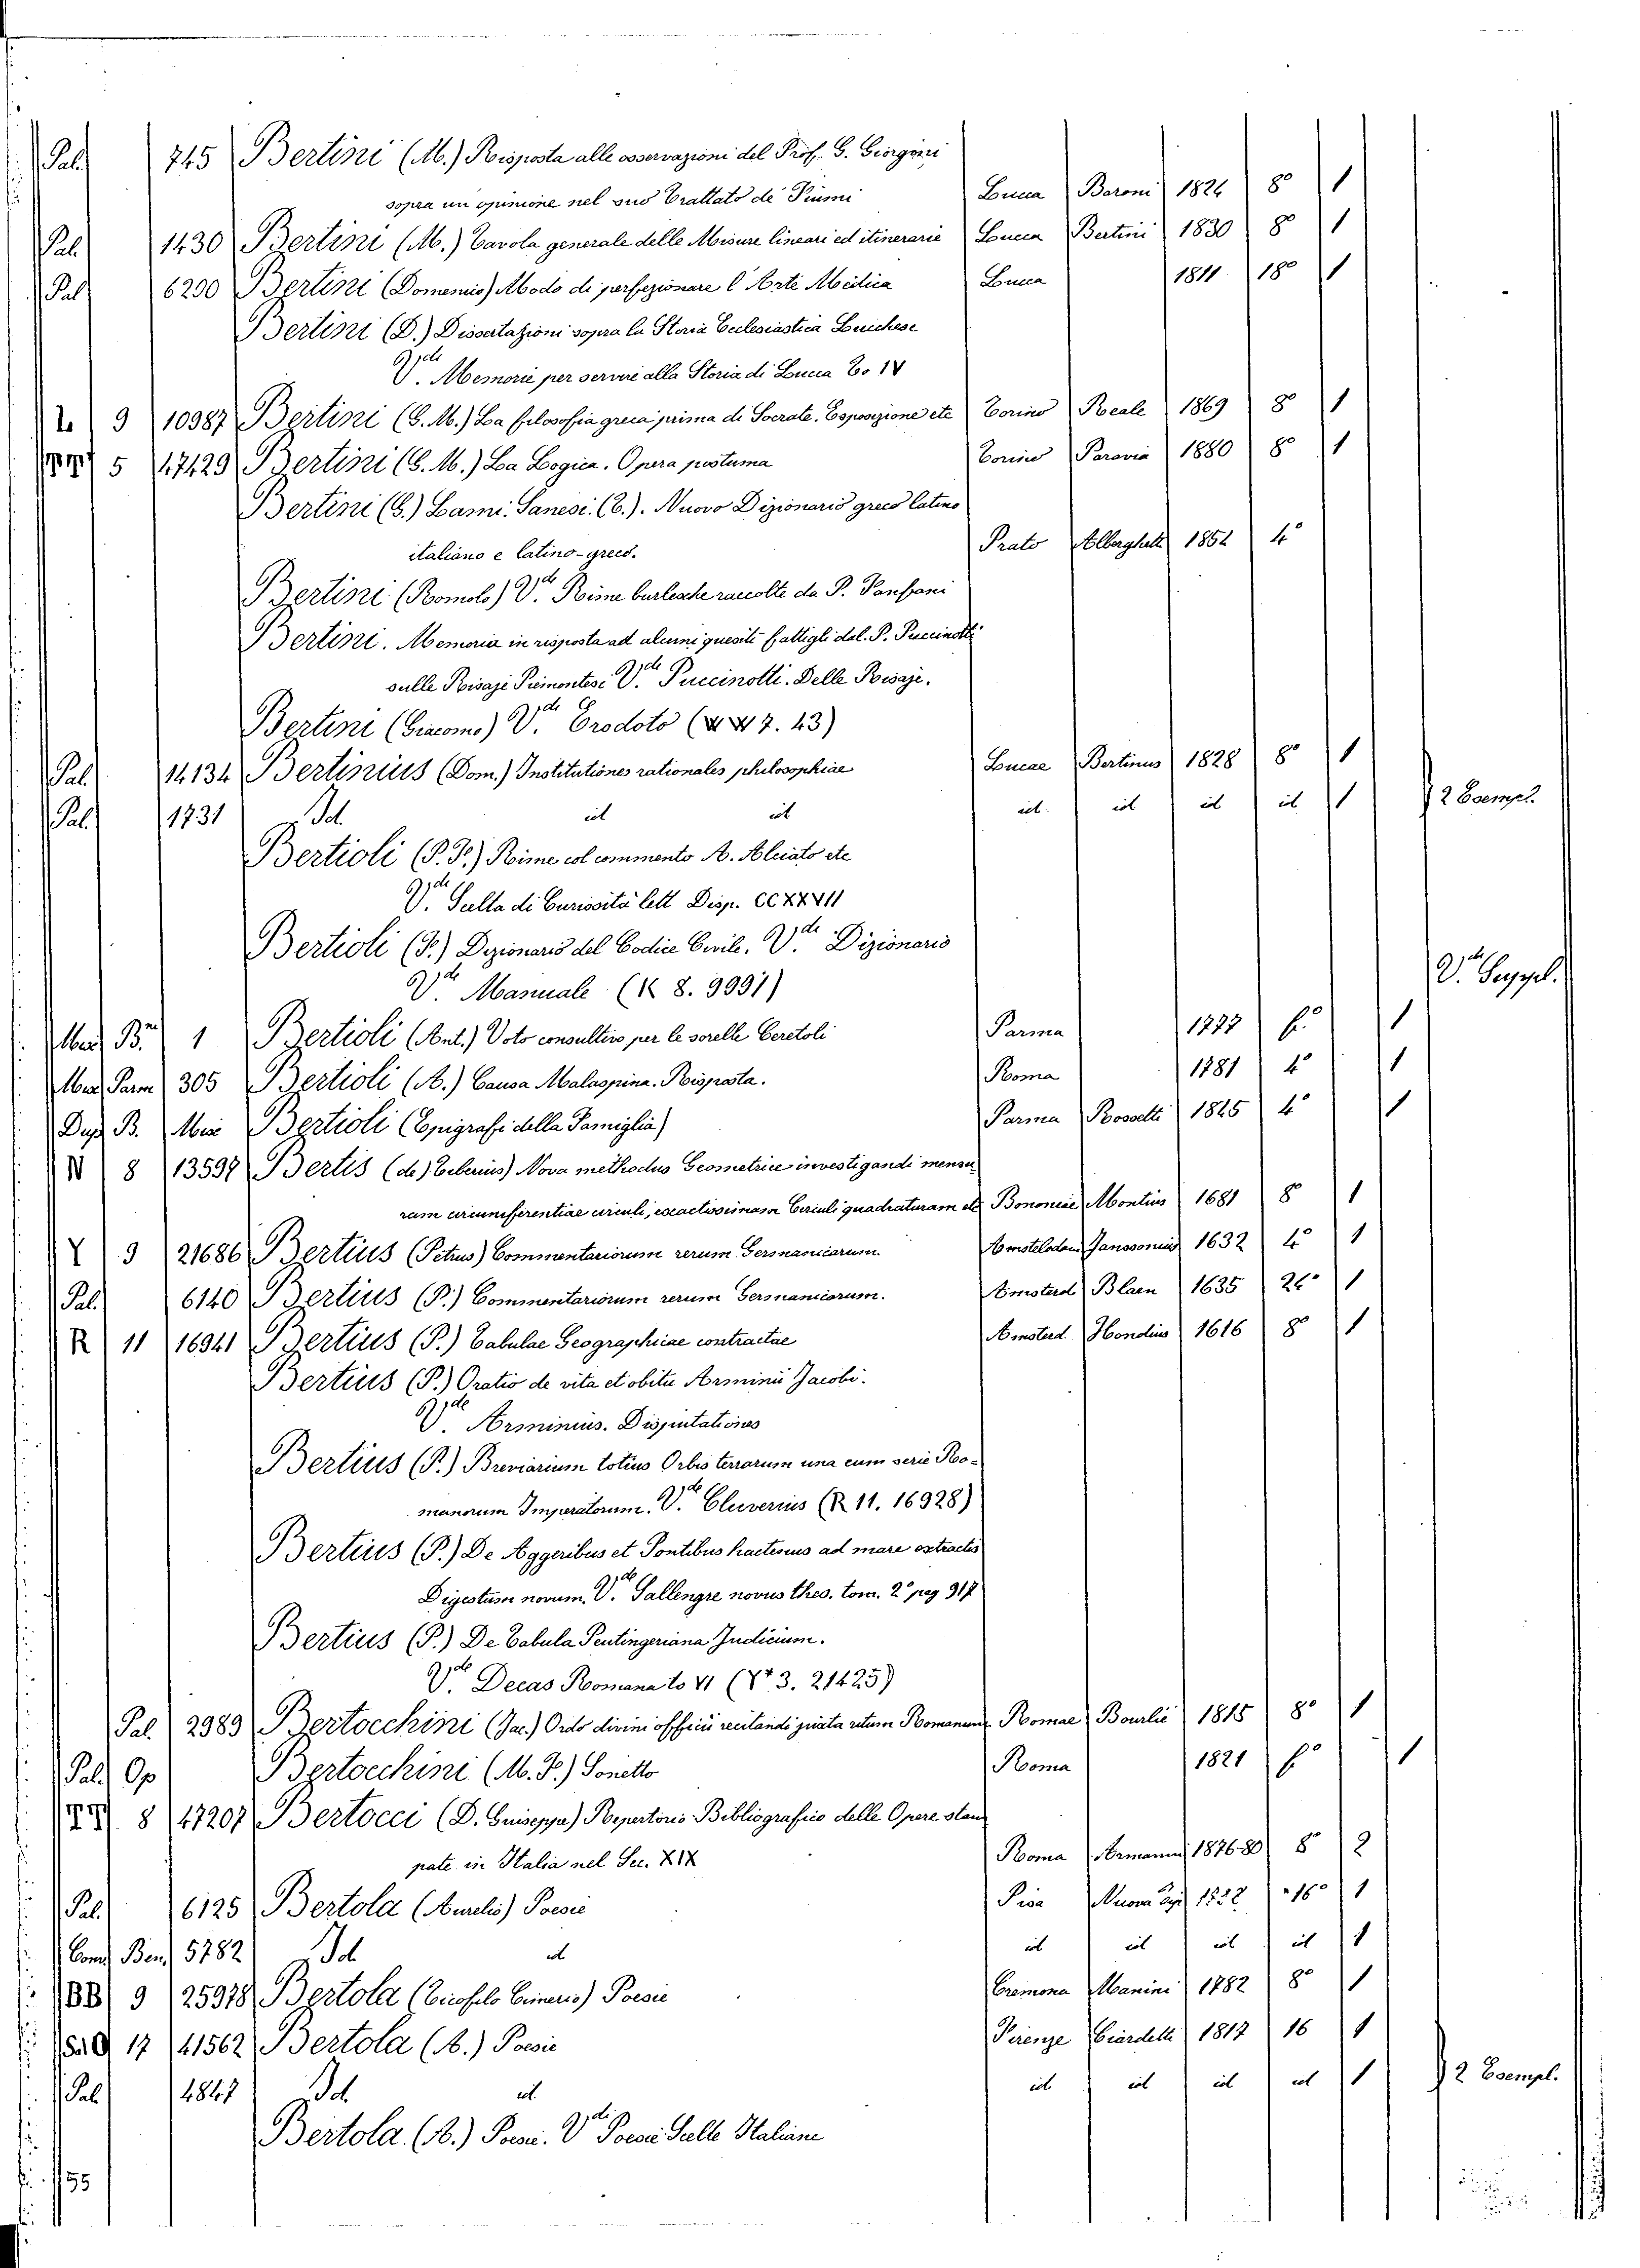 Pal. 745 Bertini (M.) Risposta alle osservazioni del Prof. G. Giorgini
sopra un opinione nel suo Trattato de Fiumi Lucca Baroni 1824 8° 1
Pal. 1430 Bertini (M.) Tavola generale delle Misure lineari ed itinerarie Lucca Bertini 1830 8° 1
Pal. 6290 Bertini (Domenico) Modo di perfezionare l'Arte Medica Lucca 1811 18° 1
Bertini (D.) Dissertazioni sopra la Storia Ecclesiastica Lucchese
V.de Memorie per servire alla Storia di Lucca To IV
L 9 10987 Bertini (G. M.) La filosofia greca prima di Socrate. Esposizione etc Torino Reale 1869 8° 1
5 47429 Bertini (G. M.) La Logica. Opera postuma Torino Paravia 1880 8° 1
Bertini (G.) Lami. Sanesi. (T.). Nuovo Dizionario greco latino
italiano e latino-greco. Prato Alberghetti 1851 4°
Bertini (Romolo) V.de Rime burlesche raccolte da P. Fanfani
Bertini. Memoria in risposta ad alcuni quesiti fattigli dal P. Puccinotti
sulle Risaje Piemontesi V.de Puccinotti. Delle Risaje.
Bertini (Giacomo) V.de Erodoto ( 7. 43)
Pal. 14134 Bertinius (Dom.) Institutiones rationales philosophiae Lucae Bertinus 1828 8° 1
Pal. 1731 Id. id id id. id id id 1 2 Esempl.
Bertioli (P. F.) Rime col commento A. Alciato etc
V.de Scelta di Curiosità lett Disp. CCXXVII
Bertioli (F.) Dizionario del Codice Civile. V.de Dizionario
V.de Manuale (K 8. 9991) V.de Suppl.
Misc B.ni 1 Bertioli (Ant.) Voto consultivo per le sorelle Ceretoli Parma 1777 f.° 1
Misc Parm 305 Bertioli (A.) Causa Malaspina. Risposta. Roma 1781 4° 1
Dup B. Mis Bertioli (Epigrafi della Famiglia) Parma Rossetti 1845 4° 1
N 8 13597 Bertis (de) Tiberius) Nova methodus Geometrice investigandi mensu
ram circumferentiae circuli, exactissimam Circuli quadraturam etc Bononiae Montius 1681 8° 1
Y 9 21686 Bertius (Petrus) Commentariorum rerum Germanicarum Amstelodam Janssonius 1632 4° 1
Pal. 6140 Bertius (P.) Commentariorum rerum Germanicarum. Amsterd Blaen 1635 24° 1
R 11 16941 Bertius (P.) Tabulae Geographicae contractae Amsterd. Hondius 1616 8° 1
Bertius (P.) Oratio de vita et obitu Arminii Jacobi.
V.de Arminius. Disputationes
Bertius (P.) Breviarium totius Orbis terrarum una cum serie Ro-
manorum Imperatorum. V.de Cluverius (R 11. 16928)
Bertius (P.) De Aggeribus et Pontibus hactenus ad mare extractis
Digestum novum. V.de Sallengre novus thes. tom. 2° pag 917
Bertius (P.) De Tabula Peutingeriana Judicium.
V.de Decas Romana to VI (Y† 3. 21425)
Pal. 2989 Bertocchini (Jac.) Ordo divini officii recitandi juxta ritum Romanum Romae Bourlié 1815 8° 1
Pal. Op Bertocchini (M. F.) Sonetto Roma 1821 f.° 1
8 47207 Bertocci (D. Giuseppe) Repertorio Bibliografico delle Opere stam
pate in Italia nel Sec. XIX Roma Armanni 1876-80 8° 2
Pal. 6125 Bertola (Aurelio) Poesie Pisa Nuova Tip 16° 1
Com Ben 5782 Id id id id id id 1
BB 9 25978 Bertola (Ticofilo Cimerio) Poesie Cremona Manini 1782 8° 1
17 41562 Bertola (A.) Poesie Firenze Ciardetti 1817 16 1
Pal. 4847 Id. id. id id id id 1 2 Esempl.
Bertola. (A.) Poesie. V.de Poesie Scelte Italiane
55